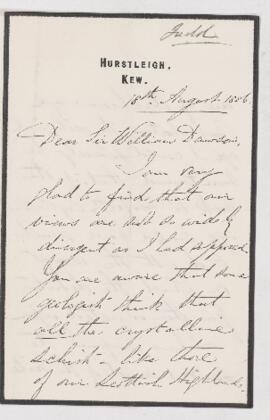 Judd
HURSTLEIGH.
KEW.
18th August 1886.
Dear Sir William Dawson,
I am very
glad to find that our
views are not so widely
divergent as I had supposed.
You are aware that some
geologists think that
all the crystalline
schists – like those
of our Scottish Highlands,